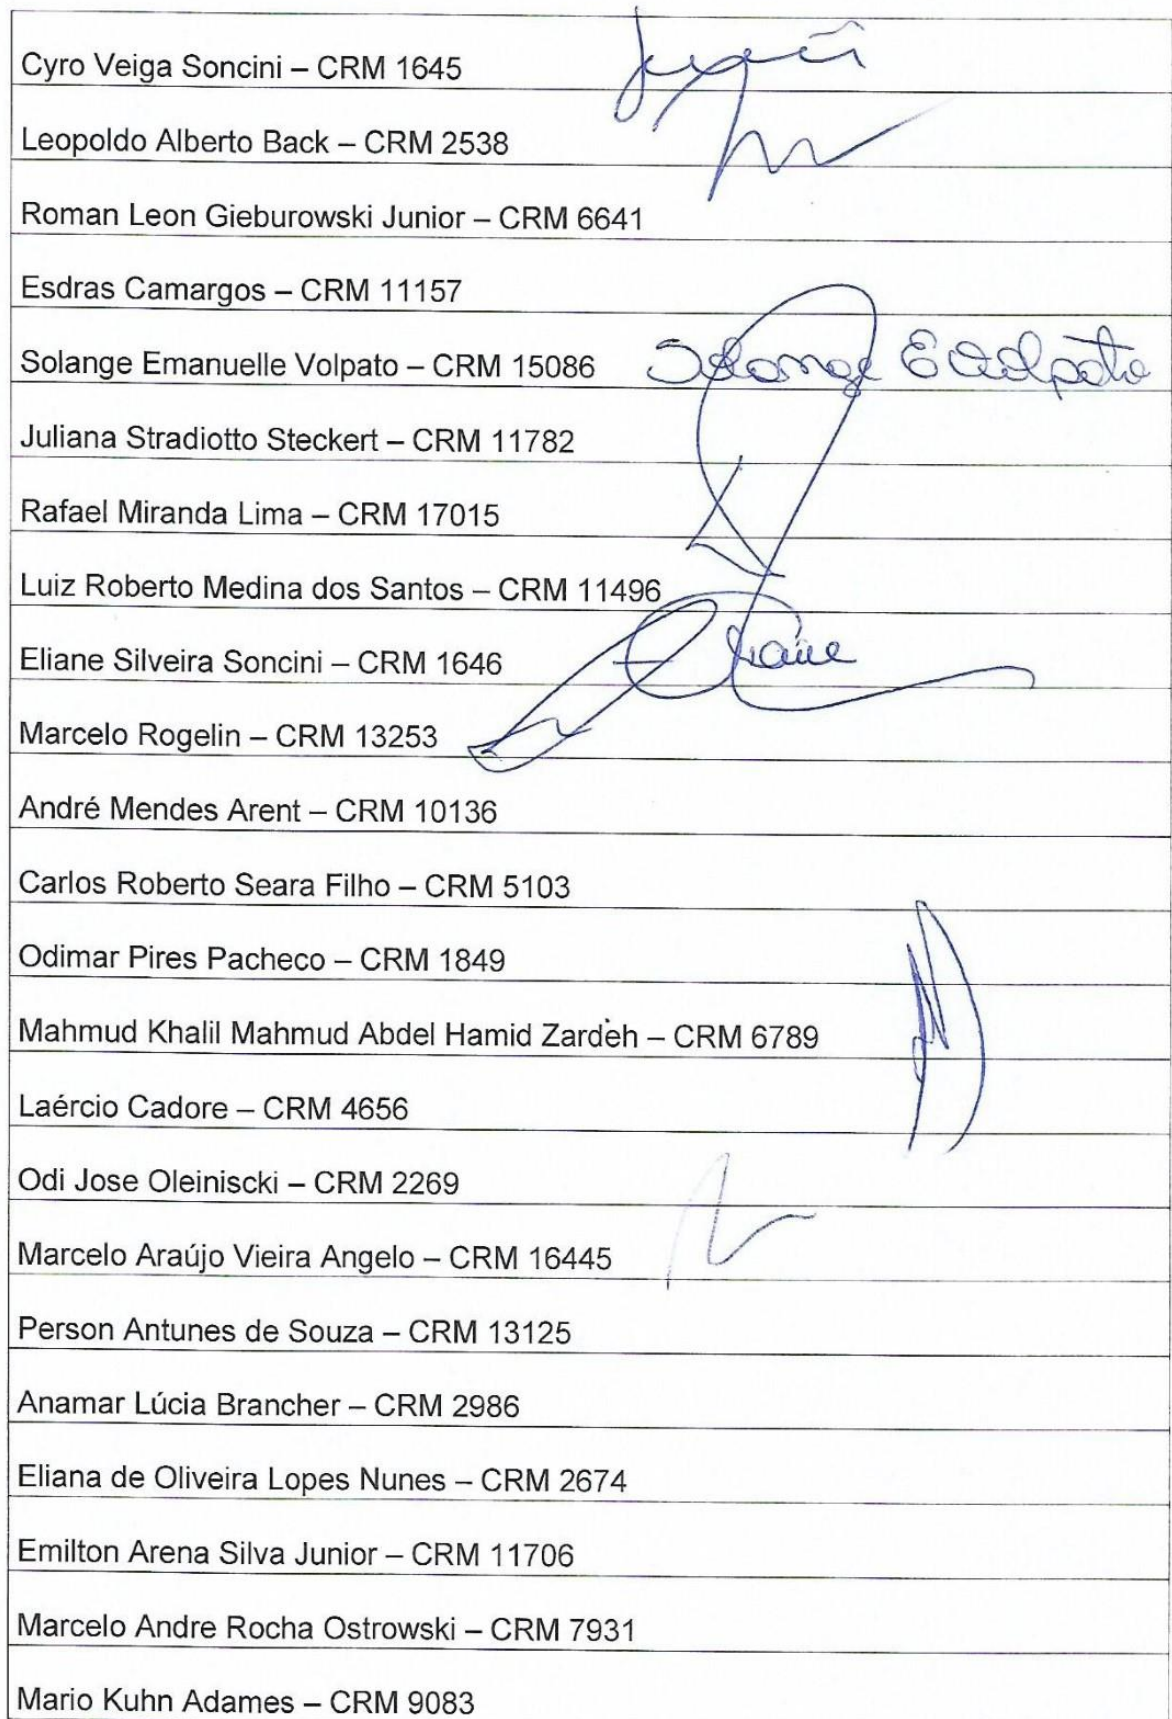 Cyro Veiga Soncini – CRM 1645
Leopoldo Alberto Back – CRM 2538
Roman Leon Gieburowski Junior – CRM 6641
Esdras Camargos – CRM 11157
Solange Emanuelle Volpato – CRM 15086 Solange E Volpato
Juliana Stradiotto Steckert – CRM 11782
Rafael Miranda Lima – CRM 17015
Luiz Roberto Medina dos Santos – CRM 11496
Eliane Silveira Soncini – CRM 1646 Eliane
Marcelo Rogelin – CRM 13253
André Mendes Arent – CRM 10136
Carlos Roberto Seara Filho – CRM 5103
Odimar Pires Pacheco – CRM 1849
Mahmud Khalil Mahmud Abdel Hamid Zardeh – CRM 6789
Laércio Cadore – CRM 4656
Odi Jose Oleiniscki – CRM 2269
Marcelo Araújo Vieira Angelo – CRM 16445
Person Antunes de Souza – CRM 13125
Anamar Lúcia Brancher – CRM 2986
Eliana de Oliveira Lopes Nunes – CRM 2674
Emilton Arena Silva Junior – CRM 11706
Marcelo Andre Rocha Ostrowski – CRM 7931
Mario Kuhn Adames – CRM 9083